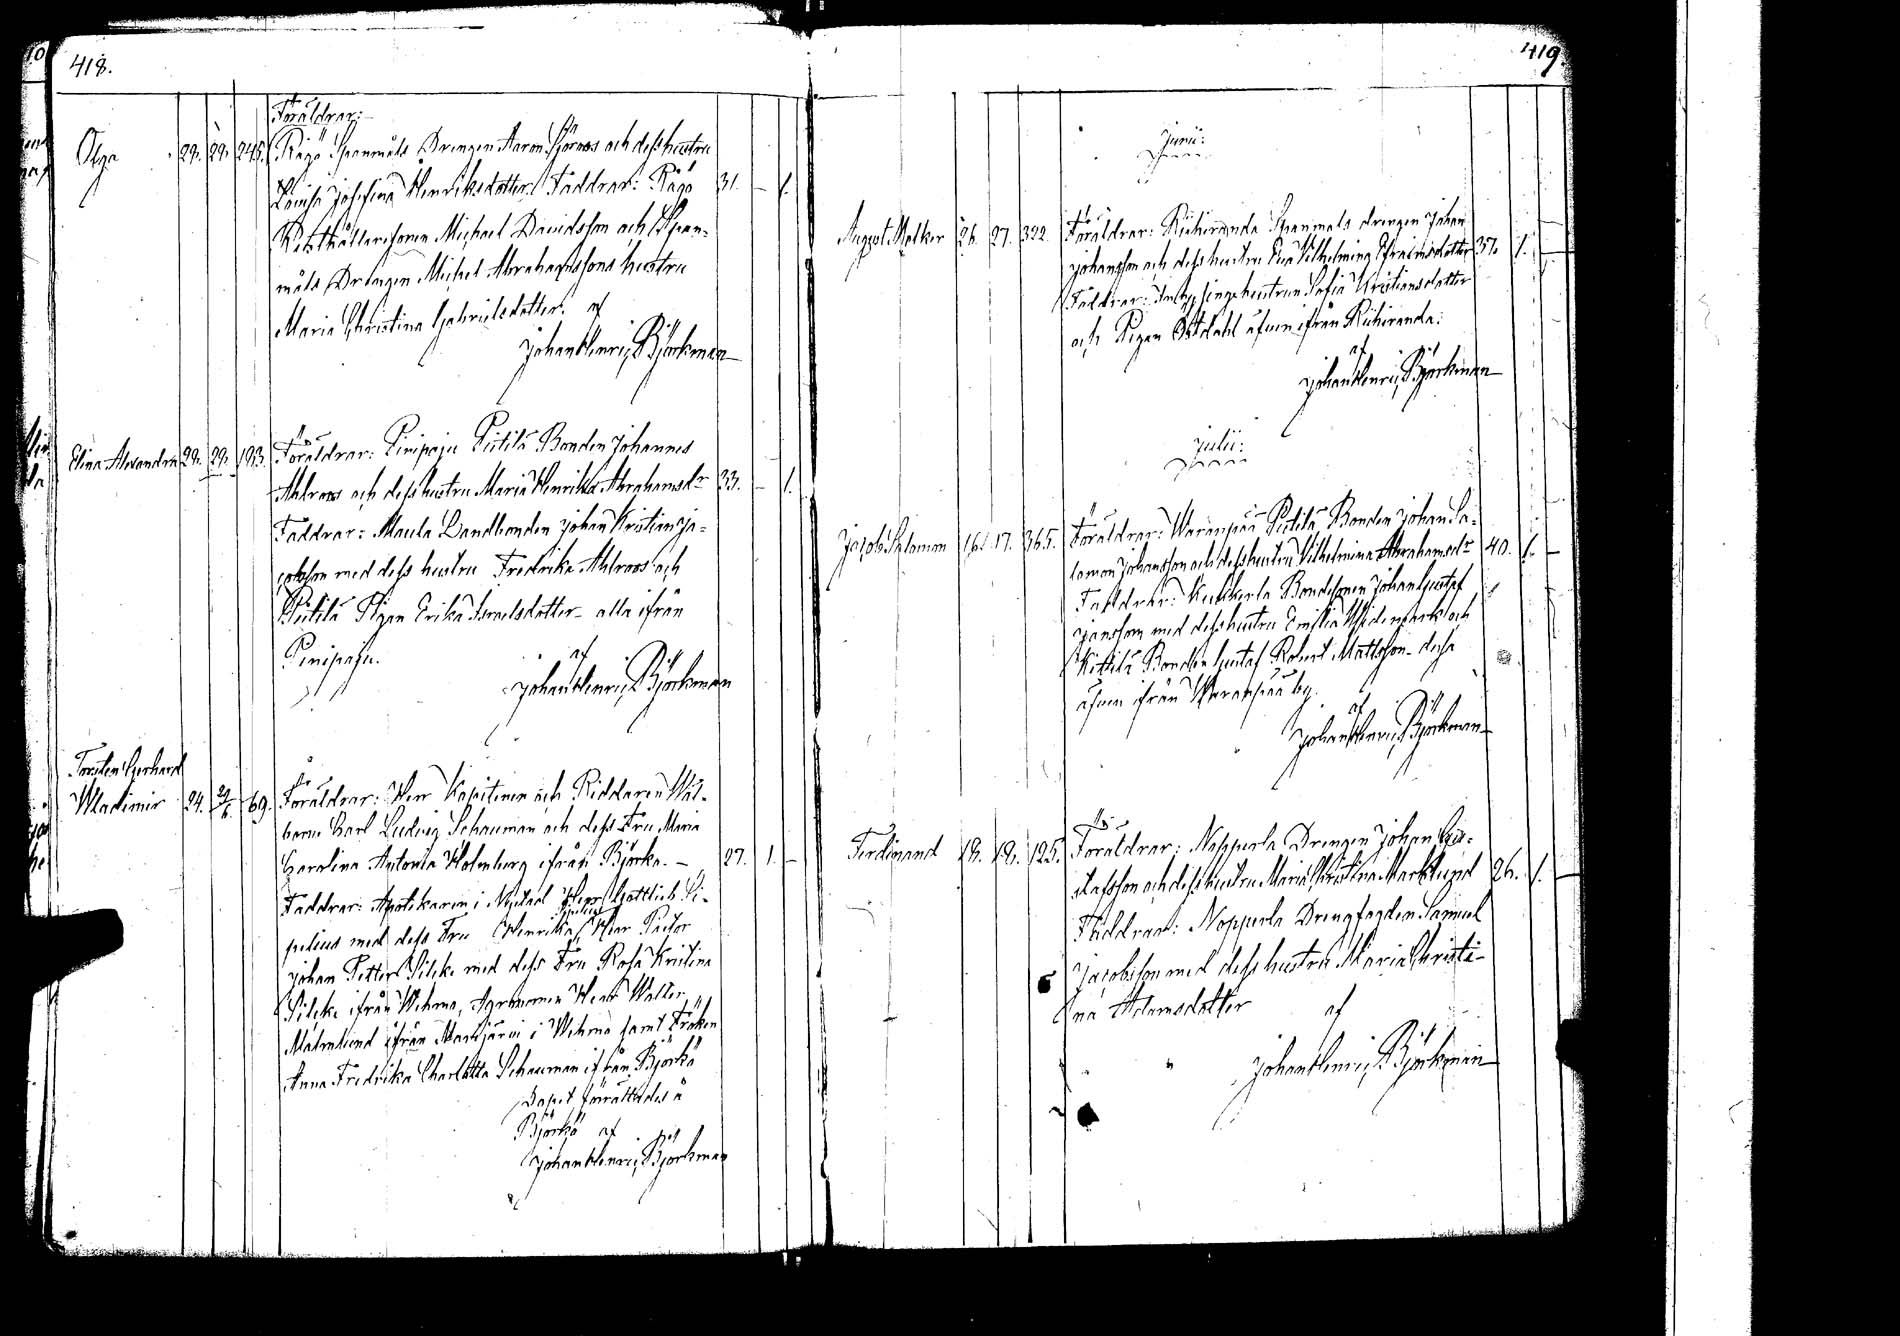 418.
Föräldrar:
Olga 29. 29. 245. Rägö Spanmåls Drengen Aaron Sjöroos och dess hustru
Lovisa Josefina Henriksdotter. Faddrar: Rägö 31. – 1.
Rusthållaresonen Michael Davidsson och Span-
måls Drengen Michel Abrahamssons hustru
Maria Christina Gabrielsdotter. af
Johan Henric Björkman
Elina Alexandra 29. 29. 193. Föräldrar: Pinipaju Pietilä Bonden Johannes
Ahlroos och dess hustru Maria Henrika Abrahamsdr 33. – 1.
Faddrar: Maula Landbonden Johan Kristian Ja-
cobsson med dess hustru Fredrika Ahlroos och
Pietilä Pigan Erika Israelsdotter – alla ifrån
Pinipaju. af
Johan Henric Björkman
Torsten Gerhard
Wladimir 24. 29/6. 69. Föräldrar: Herr Kapitenen och Riddaren Wäl-
borne Carl Ludvig Schauman och dess Fru Maria
Carolina Antonia Holmberg ifrån Björkö. – 27. 1. –
Faddrar: Apotikaren i Nystad Herr Gottlieb Si-
pelius med dess Fru Henrika Herr Pastor
Johan Petter Silcke med dess Fru Rosa Kristina
Silcke ifrån Wehmo, Agronomen Herr Walter
Malmlund ifrån i Wehmo samt Fröken
Anna Fredrika Charlotta Schauman ifrån Björkö
Dopet förrättades å
Björkö af
Johan Henric Björkman
419.
Junii:
August Malker 26. 27. 322. Föräldrar: Riihiranda Spanmåls drengen Johan
Johansson och dess hustru Eva Vilhelmina Efraimsdotter 37. 1. –
Faddrar: Inhysingehustrun Sofia Kristiansdotter
och Pigan Östdahl äfven ifrån Riihiranda:
af
Johan Henric Björkman
Julii:
Jacob Salomon 16. 17. 365. Föräldrar: Waranpää Pietilä Bonden Johan Sa-
lomon Johansson och dess hustru Vilhelmina Abrahamsdr 40. 1. –
Faddrar: Kukkerla Bondesonen Johan Gustaf
Jansson med dess hustru Emilia Widemark och
Kittilä Bonden Gustaf Robert Mattsson – dessa
äfven ifrån Waranpää by.
af
Johan Henric Björkman
Ferdinand 18. 18. 125. Föräldrar: Nopperla Drengen Johan Gu-
stafsson och dess hustru Maria Christina Marklund 26. 1. –
Faddrar: Nopperla Drengfogden Samuel
Jacobsson med dess hustru Maria Christi-
na Adamsdotter af
Johan Henric Björkman